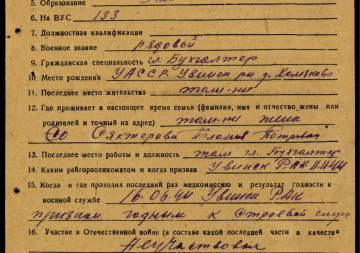 5. Образование
6. На ВУС 133
7. Должностная квалификация
8. Военное звание рядовой
9. Гражданская специальность гл. Бухгалтер
10. Место рождения УАССР Увинск рн д.
11. Последнее место жительства там-ни
12. Где проживает в настоящее время семья (фамилия, имя и отчество жены или
родителей и точный их адрес) там-ни жена
Петровна
13. Последнее место работы и должность там гл. Бухгалтер
14. Каким райгорвоенкоматом и когда призван Увинск
15. Когда и где проходил последний раз медкомиссию и результат годности к
военной службе 16.06.44 Увинск РВК
признан годным к строевой служ
16. Участие в Отечественной войне (в составе какой последней части в качеств
Не участвовал